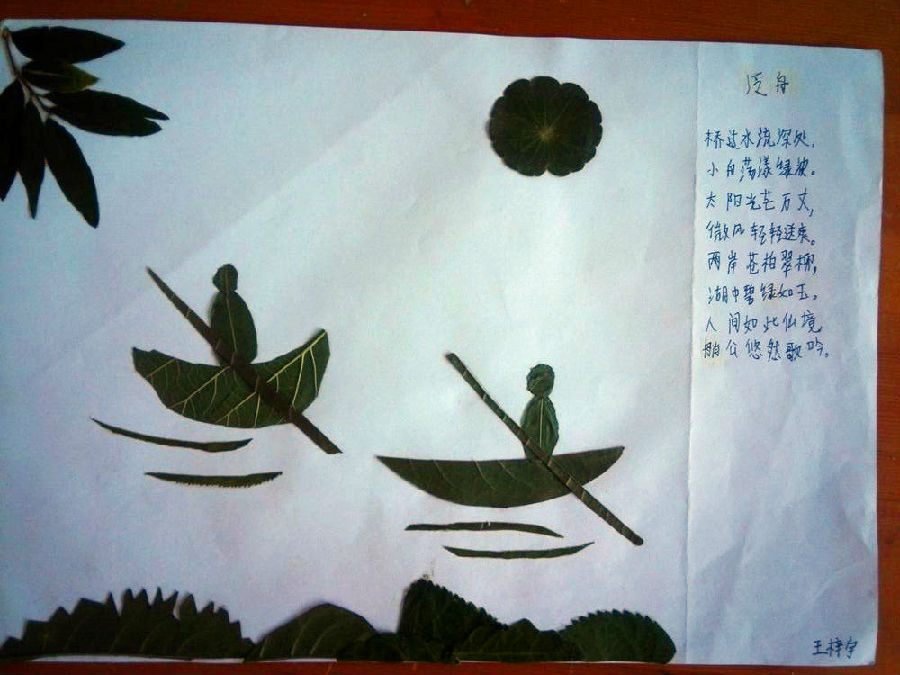 泛舟
桥边水流深处,
小舟荡漾绿波。
太阳光芒万丈,
微风轻轻送爽。
两岸苍柏翠柳,
湖中碧绿如玉,
人间如此仙境
艄公悠然歌吟。
王梓宇